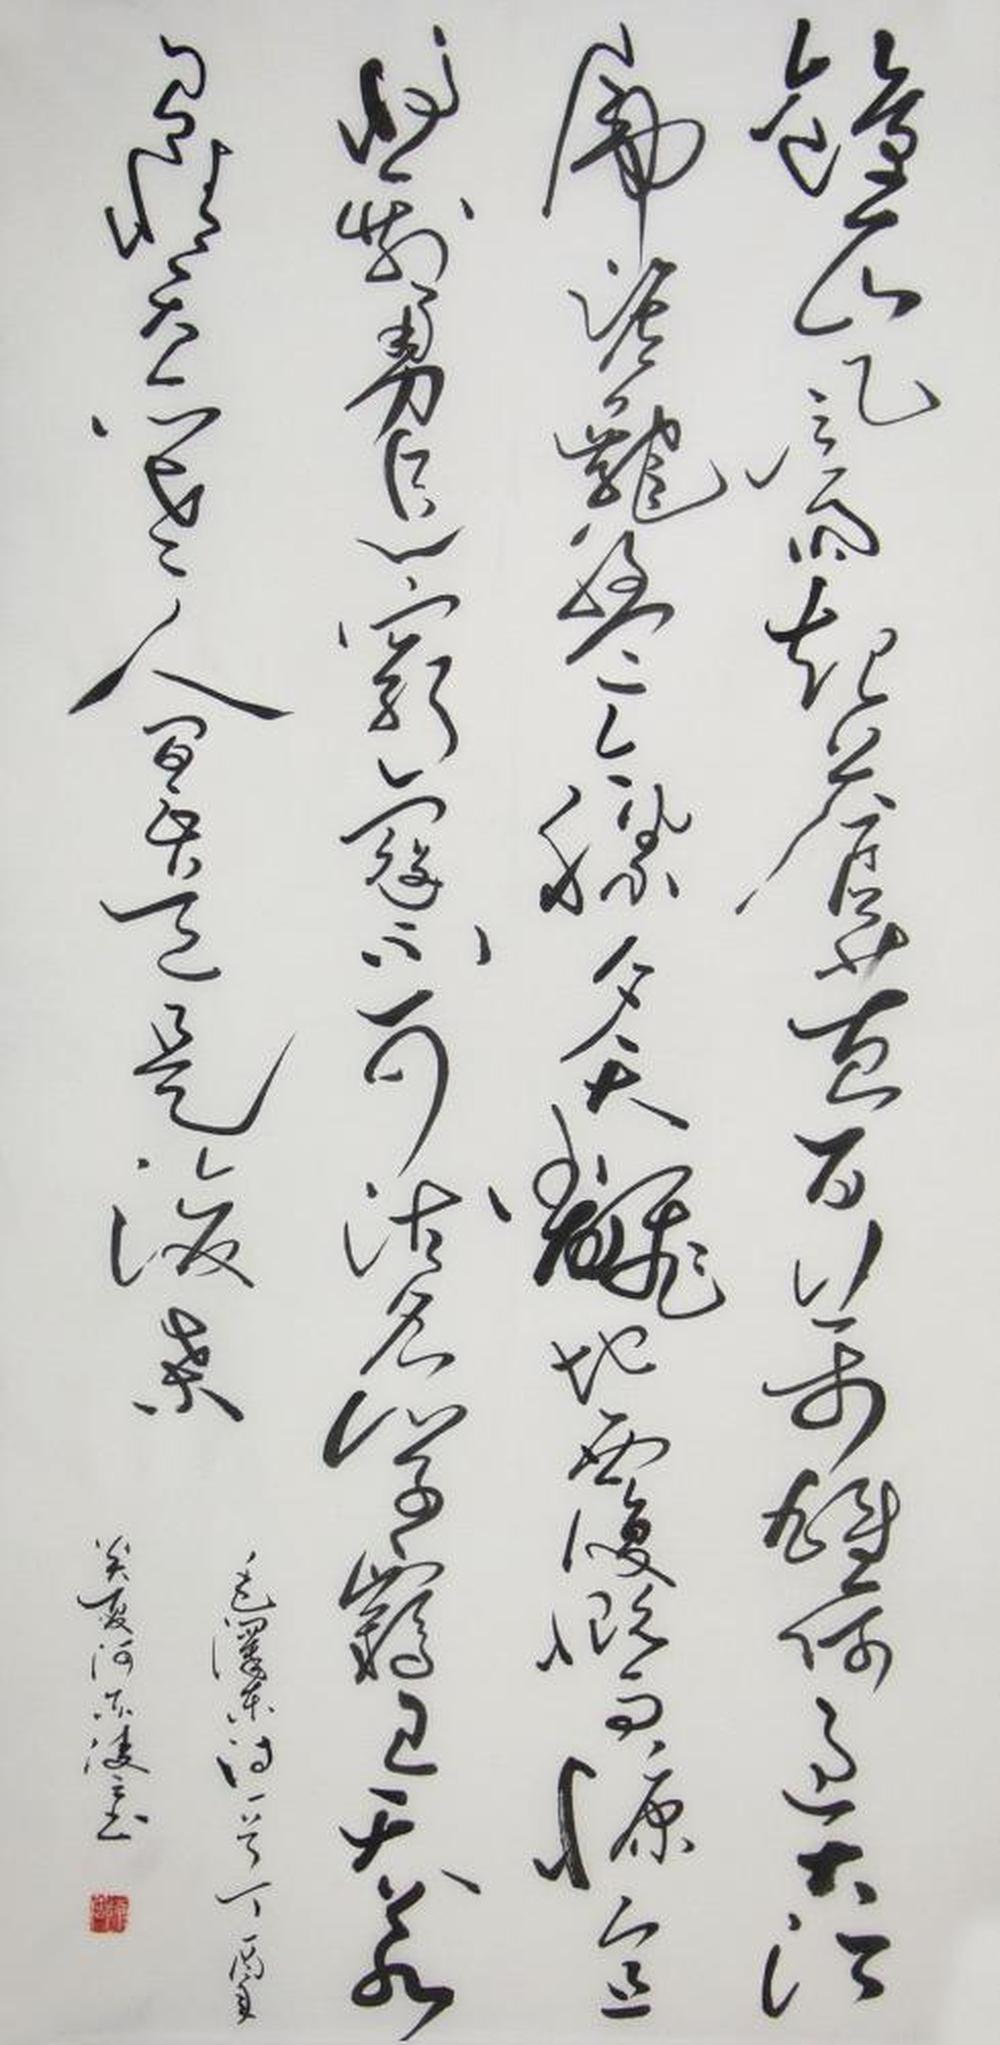 鐘山风雨起苍黄百万雄师过大江
虎踞龍盤今勝昔天翻地覆慨而慷宜
将剩勇追窮寇不可沽名学霸王天若
有情天亦老人间正道是沧桑
毛澤东诗一首丁酉
炎夏河东凌云书